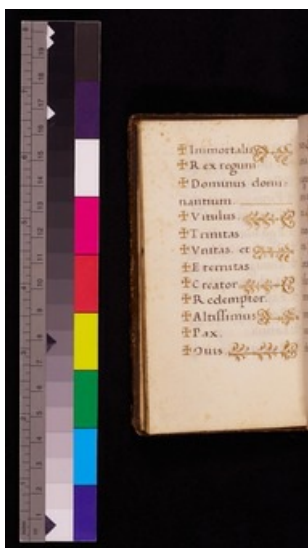 ✠Immortalis
✠Rex regum
✠Dominus domi-
nantium.
✠Vitulus.
✠Trinitas.
✠Vnitas. et
✠Eternitas.
✠Creator.
✠Redemptor.
✠Altissimus
✠Pax.
✠Ouis.